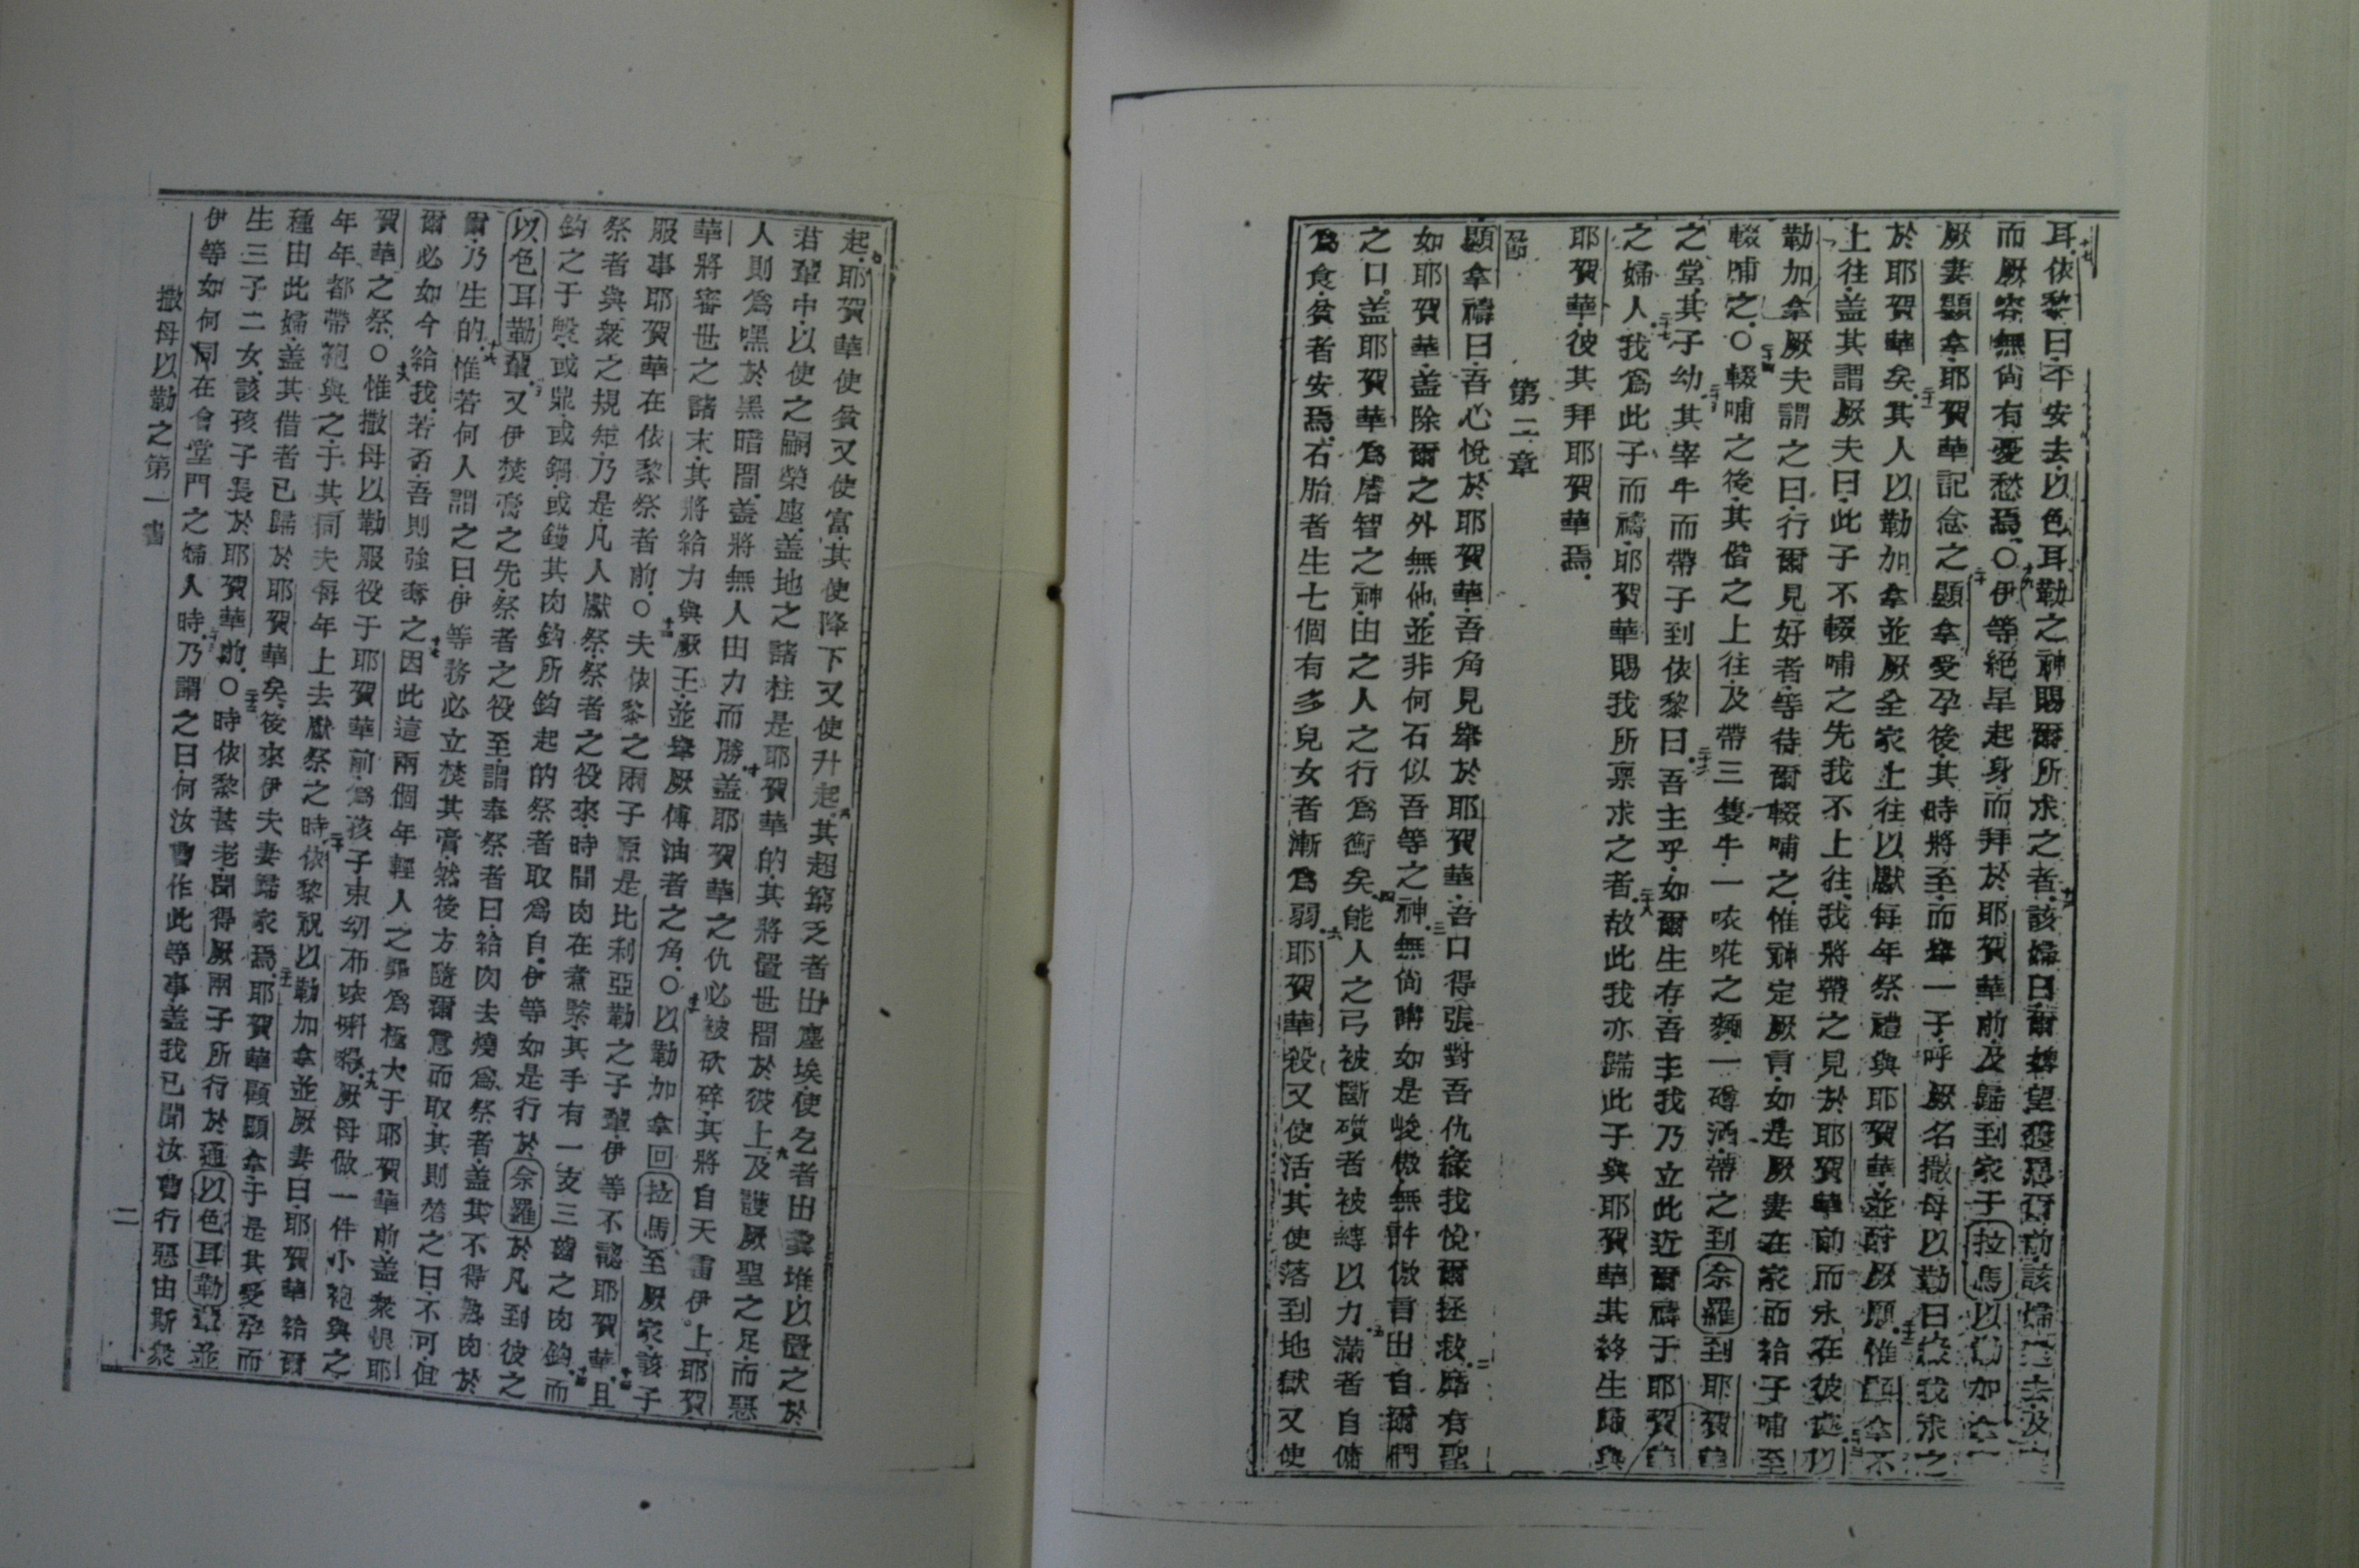 耳依黎曰平安去以色耳勒之神賜爾所求之者該婦曰爾婢望獲恩爾前該婦
而厥容無尙有憂愁焉○伊等絕早起身而拜於耶賀華前及歸到家于拉馬以勒加拿
厥妻顯拿耶賀華記念之顯拿受孕後其時將至而舉一子呼厥名撒母以勒曰我求之
於耶賀華矣其人以勒加拿並厥全家上往以獻每年祭禮與耶賀華並酹厥愿惟顯拿不
上往盖其謂厥夫曰此子不輟哺之先我不上往我將帶之見於耶賀華前而永在彼處以
勒加拿厥夫謂之曰行爾見好者等待爾輟哺之惟神定厥言如是厥妻在家而給子哺至
輟哺之○輟哺之後其偕之上往及帶三隻牛一咴㖿之麵一罇酒帶之到佘羅到耶賀華
之堂其子幼其宰牛而帶子到依黎曰吾主乎如爾生存吾主我乃立此近爾禱于耶賀華
之婦人我爲此子而禱耶賀華賜我所禀求之者故此我亦歸此子與耶賀華其終生歸與
耶賀華彼其拜耶賀華焉
第二章
節
顯拿禱曰吾心悅於耶賀華吾角見舉於耶賀華吾口得張對吾仇緣我悅爾拯救靡有聖
如耶賀華盖除爾之外無他並非何石似吾等之神無尙講如是峻傲無許傲言出自爾們
之口盖耶賀華爲睿智之神由之人之行爲衡矣能人之弓被斷礩者被縳以力滿者自傭
爲食貧者安焉石胎者生七個有多兒女者漸爲弱耶賀華殺又使活其使落到地獄又使
起耶賀華使貧又使富其使降下又使升起其超窮乏者出塵埃使乞者出糞堆以置之於
君輩中以使之嗣榮座盖地之諸柱是耶賀華的其將置世間於彼上及護厥聖之足而惡
人則爲嘿於黑暗間盖將無人由力而勝盖耶賀華之仇必被砍碎其將自天雷伊上耶賀
華將審世之諸末其將給力與厥王並舉厥傅油者之角○以勒加拿回拉馬至厥家該子
服事耶賀華在依黎祭者前○夫依黎之兩子原是比利亞勒之子輩伊等不認耶賀華且
祭者與衆之規矩乃是凡人獻祭祭者之役來時間肉在煮緊其手有一支三齒之肉鈎而
鈎之于盤或鼎或鍋或鑊其肉鈎所鈎起的祭者取爲自伊等如是行於佘羅於凡到彼之
以色耳勒輩又伊焚膏之先祭者之役至謂奉祭者曰給肉去燒爲祭者盖其不得熟肉於
爾乃生的惟若何人謂之曰伊等務必立焚其膏然後方隨爾意而取其則答之曰不可但
爾必如今給我若否吾則強奪之因此這兩個年輕人之罪爲極大于耶賀華前盖衆恨耶
賀華之祭○惟撒母以勒服役于耶賀華前爲孩子束幼布咴㖿得厥母做一件小袍與之
年年都帶袍與之于其同夫每年上去獻祭之時依黎祝以勒加拿並厥妻曰耶賀華給爾
種由此婦盖其借者已歸於耶賀華矣後來伊夫妻歸家焉耶賀華顧顯拿于是其受孕而
生三子二女該孩子長於耶賀華前○時依黎甚老聞得厥兩子所行於通以色耳勒輩並
伊等如何同在會堂門之婦人時乃謂之曰何汝曹作此等事盖我已聞汝曹行惡由斯衆
撒母以勒之第一書
二